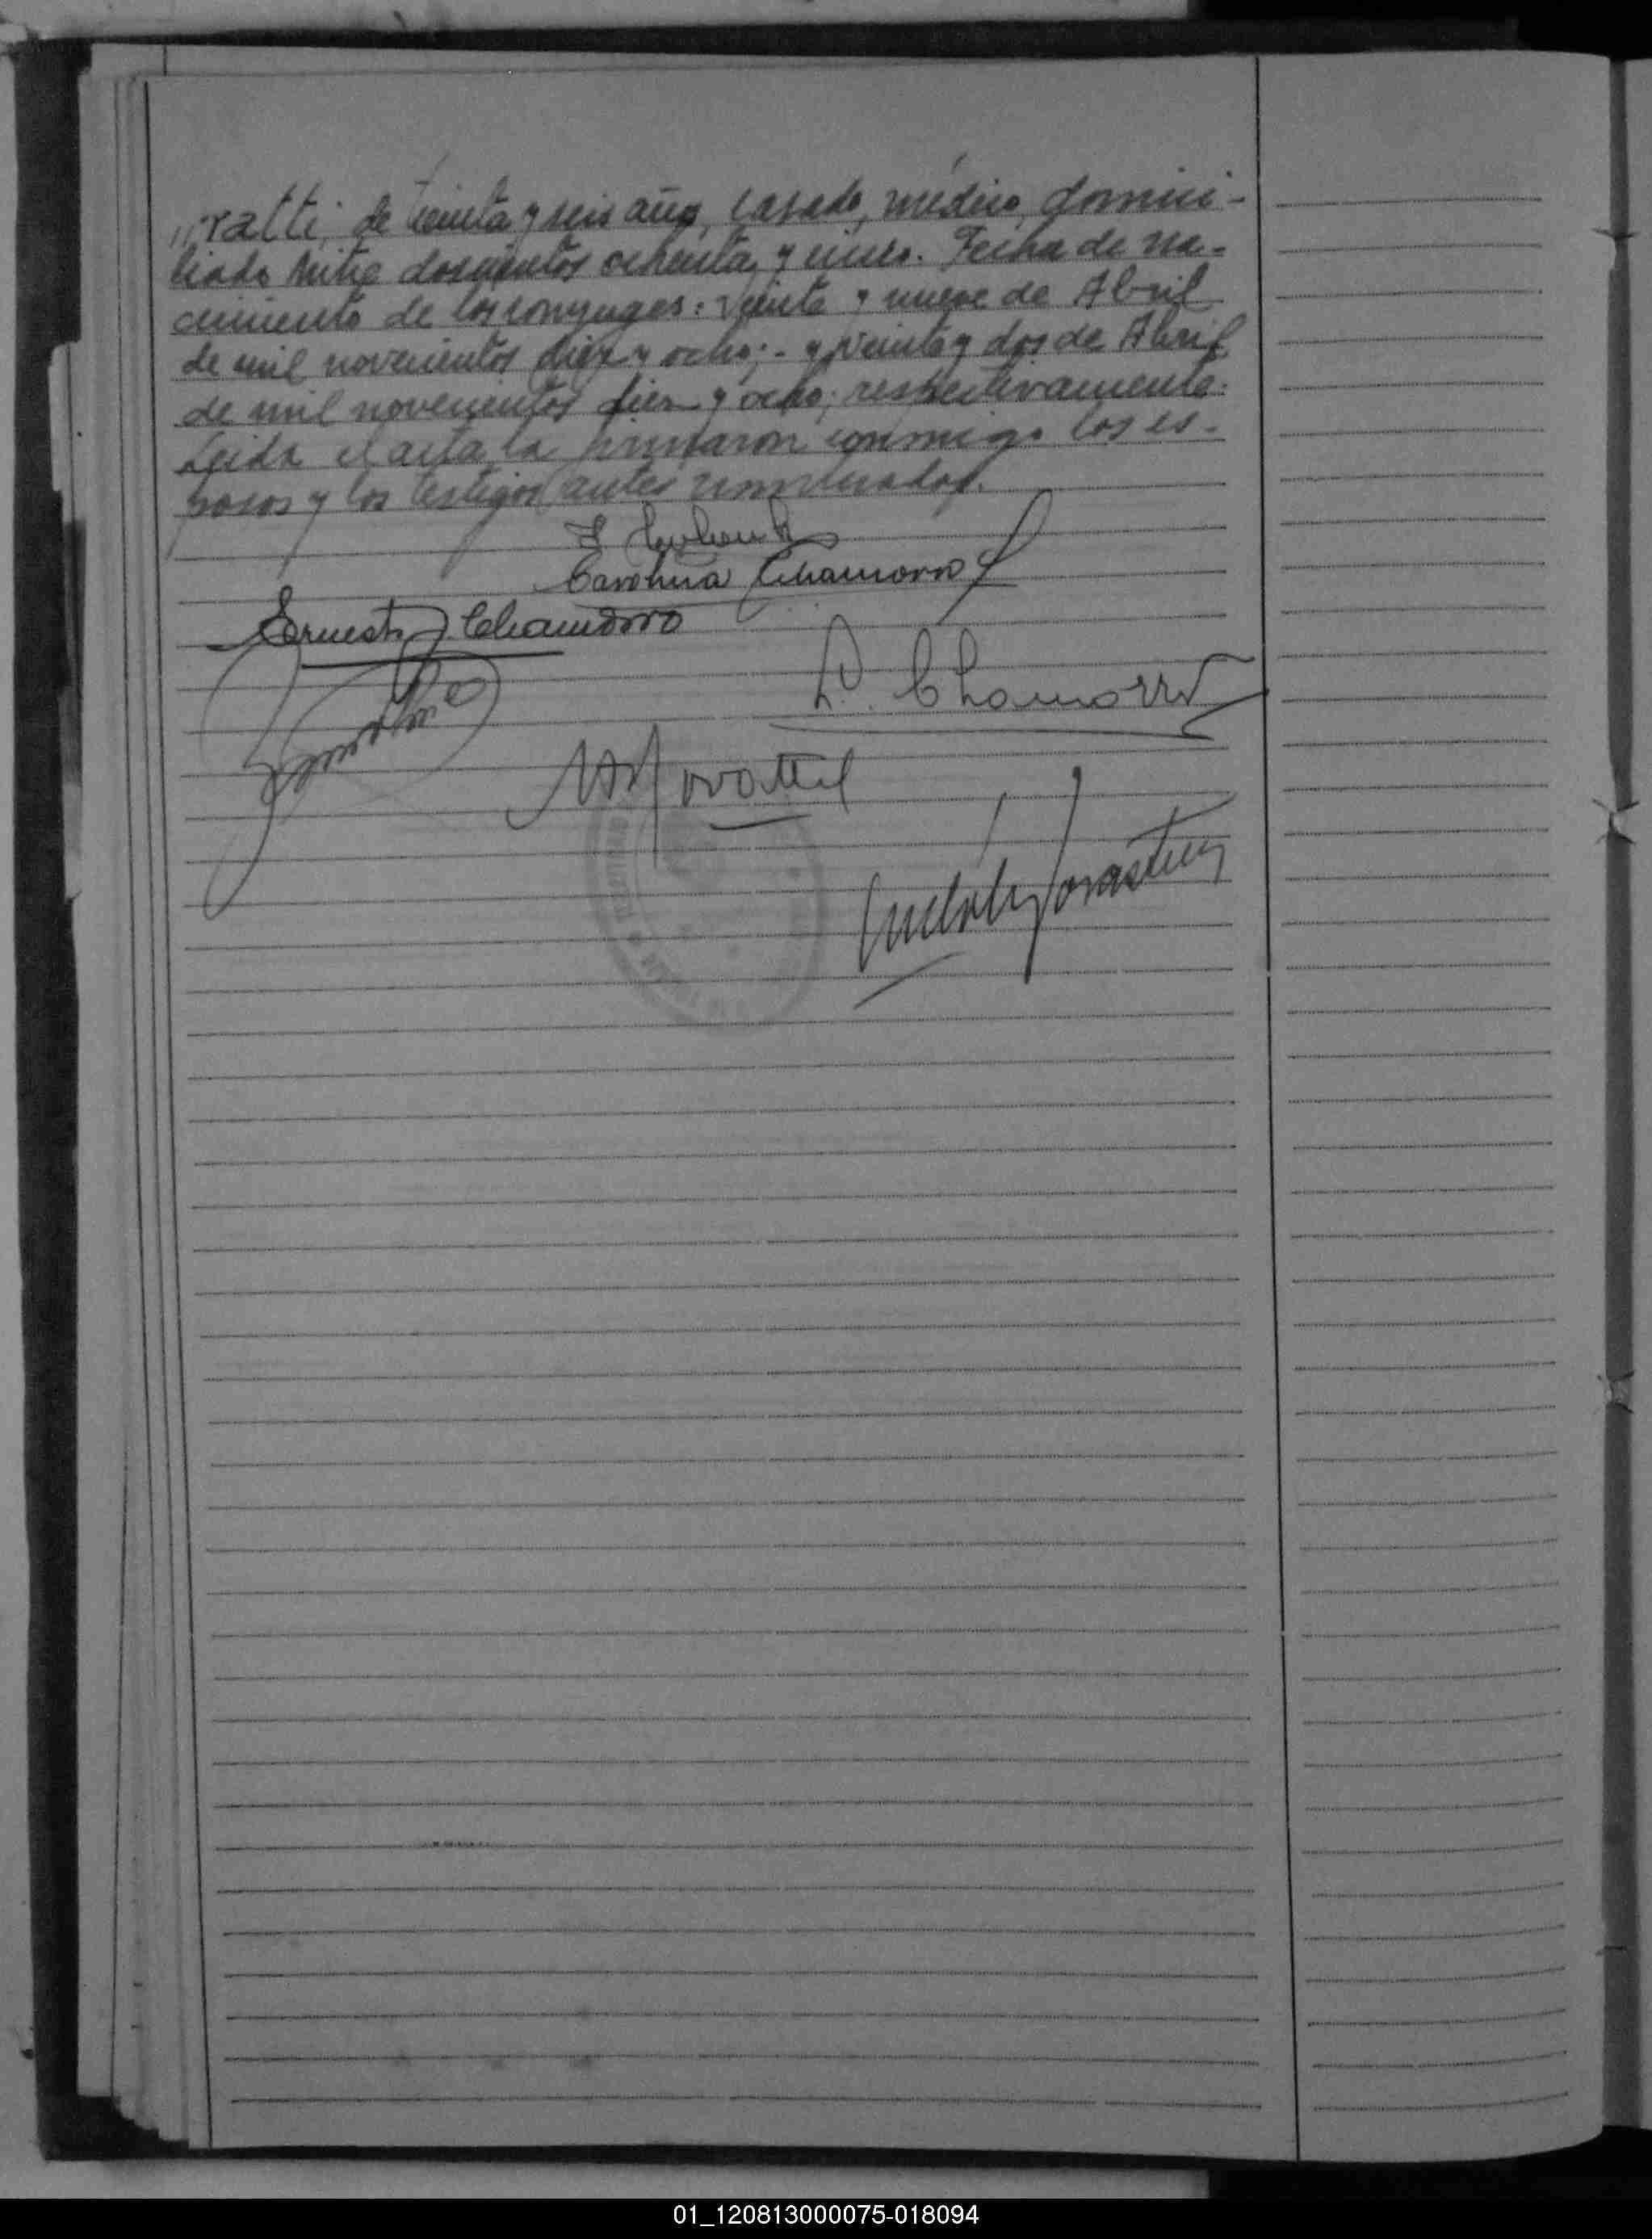 "ratti, de treinta y seis años, casado, médico, domici-
liado Mitre doscientos ochenta y cinco. Fecha de na-
cimiento de los conyuges: Veinte y nueve de Abril
de mil novecientos diez y ocho; - y veinte y dos de Abril
de mil novecientos diez y ocho; respectivamente.
Leida el acta, la firmaron conmigo los es-
posos y los testigos antes nombrados.
Carolina Chamorro
Ernesto Chamorro
L. Chamorro
01_120813000075-018094